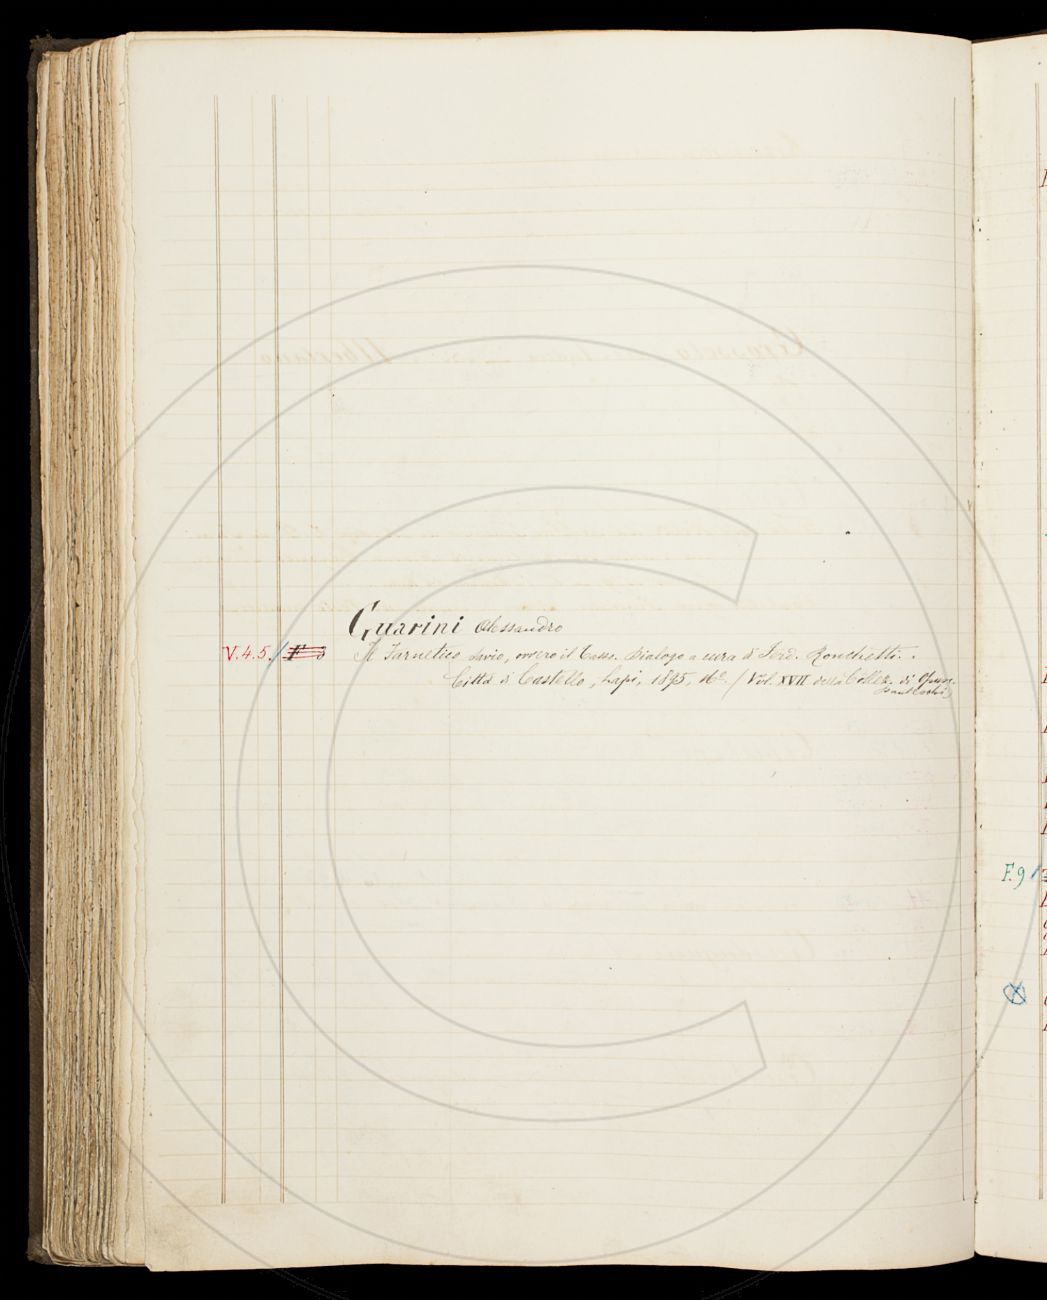 Guarini Alessandro
V.4.5. / Il Farnetico savio, ovvero il Tasso. Dialogo a cura di Ferd. Ronchetti.
Città di Castello, Lapi, 1895, 16º. / Vol. XVII della Collez. di Opusc.
danteschi)
F.9